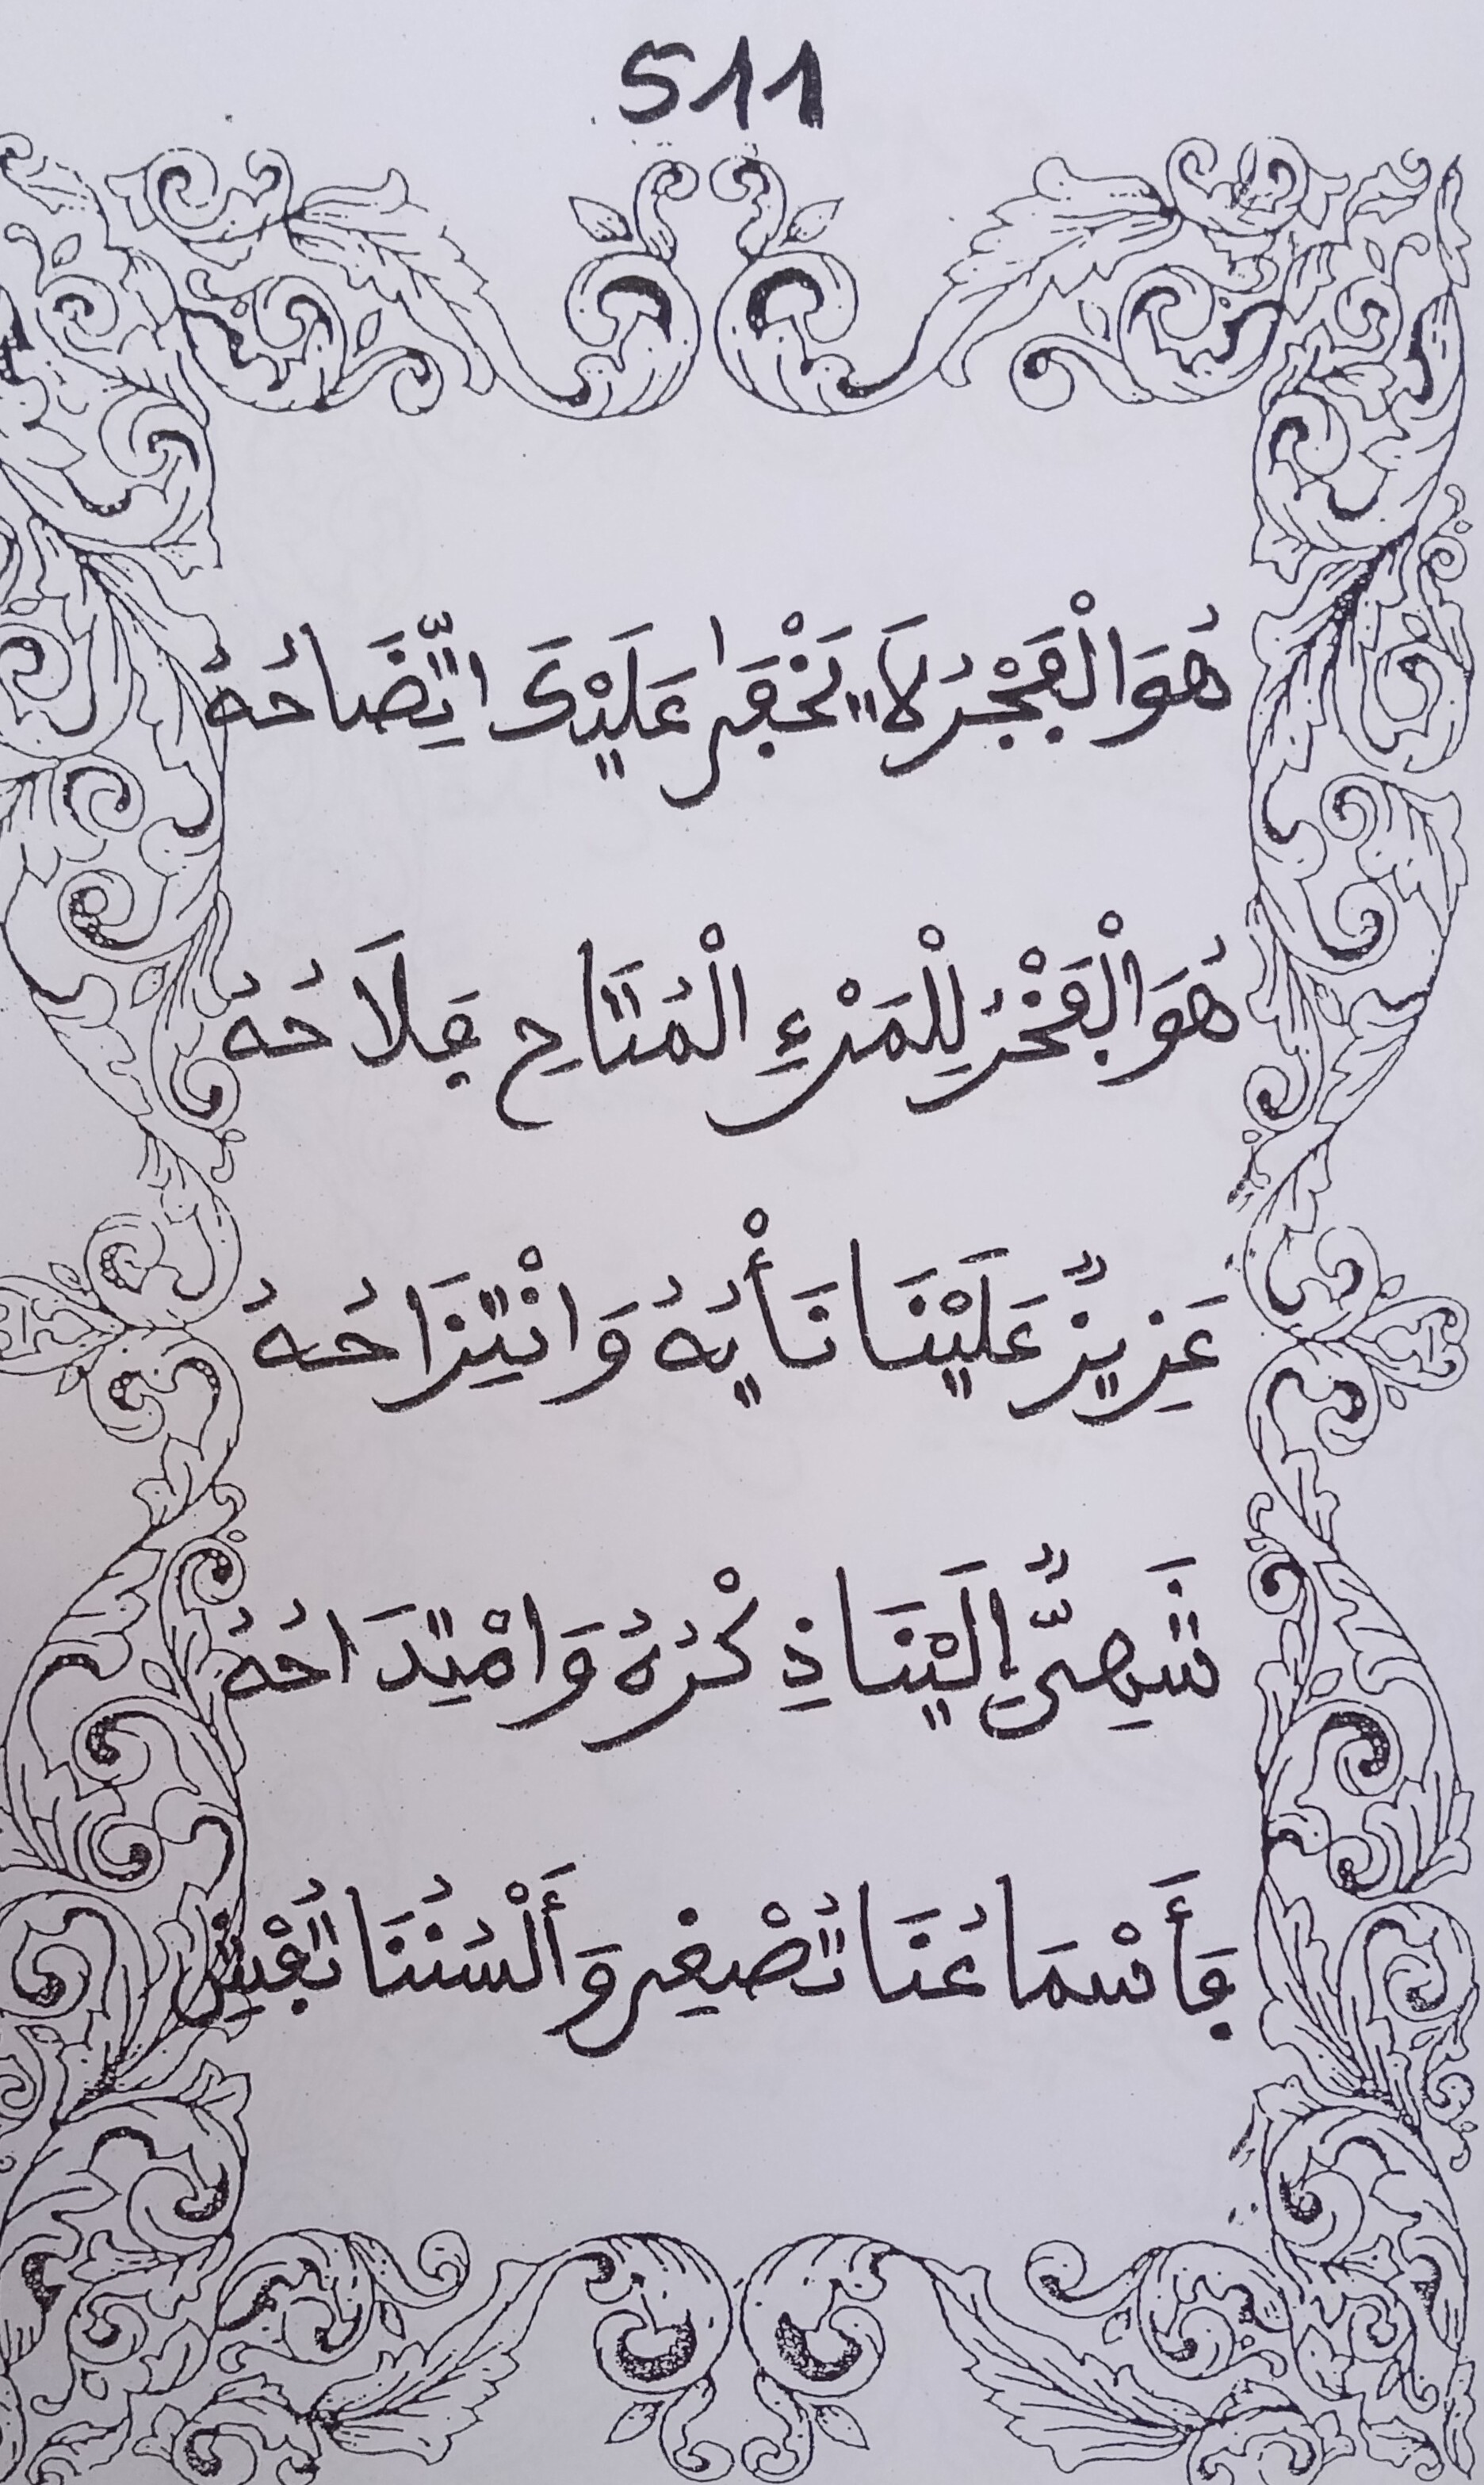 511
هُوَ الْفَجْرُ لَا يَخْفَىٰ عَلَيْكَ اتِّضَاحُهُ
هُوَ الْفَخْرُ لِلْمَرْءِ الْمُتَاحِ فَلَاحُهُ
عَزِيزٌ عَلَيْنَا نَأْيُهُ وَانْتِزَاحُهُ
شَهِيٌّ إِلَيْنَا ذِكْرُهُ وَامْتِدَاحُهُ
فَأَسْمَاعُنَا تُصْغِي وَأَلْسُنُنَا تُفْشِ